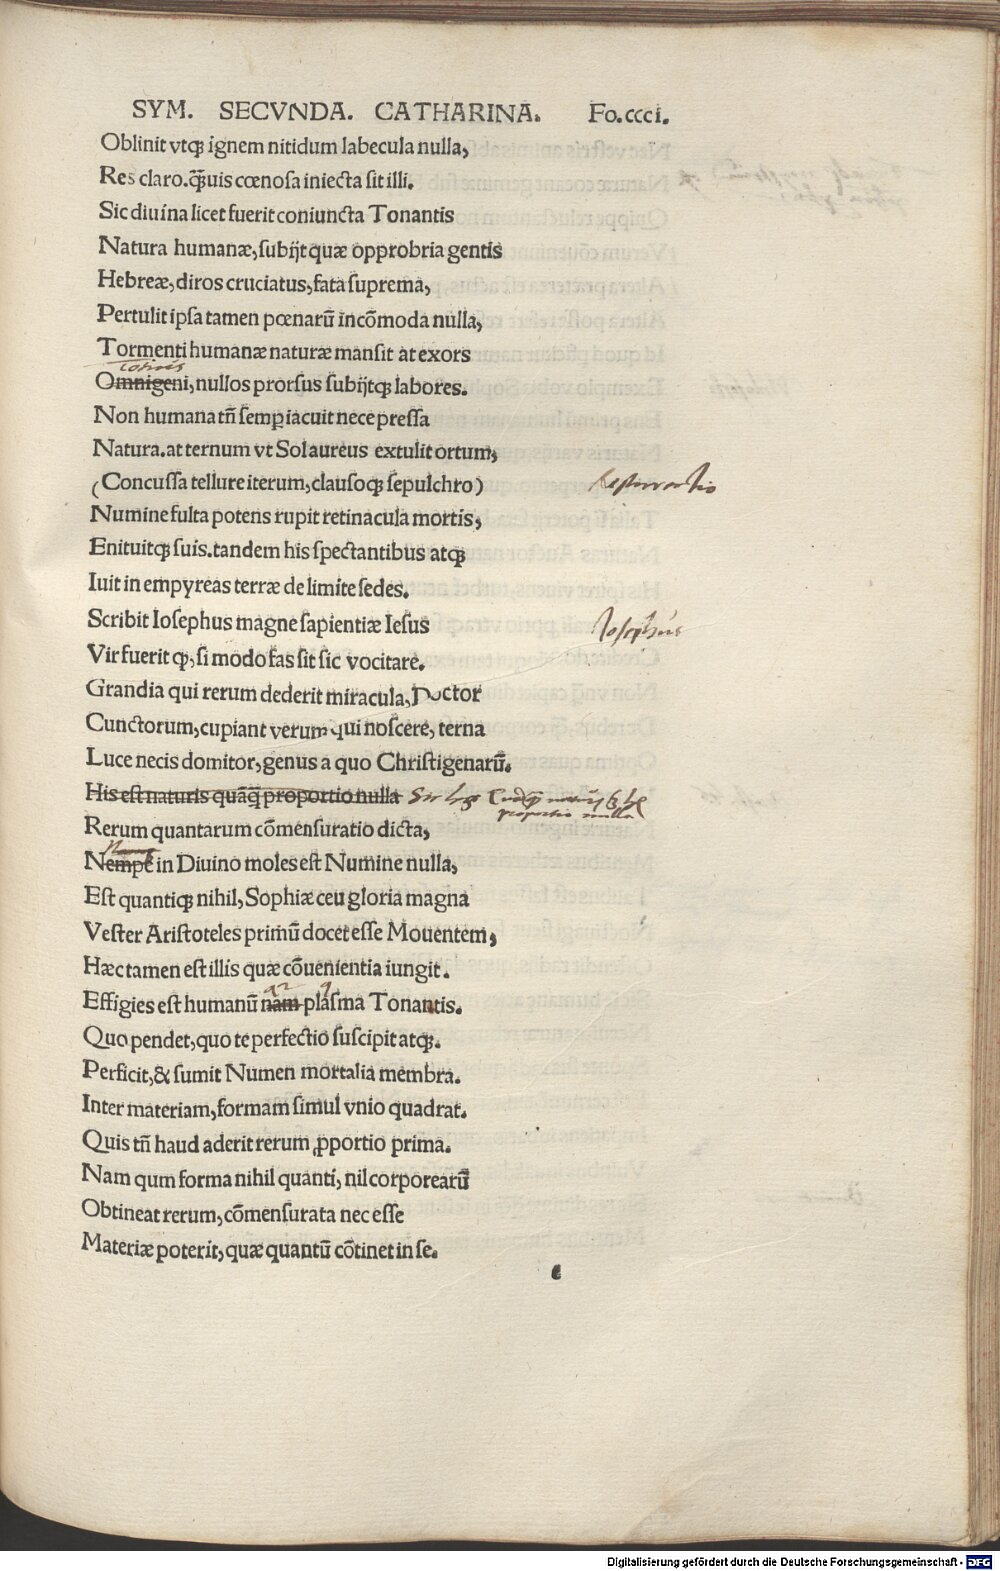 SYM. SECVNDA. CATHARINA. Fo.ccci.
Oblinit vtqꝫ ignem nitidum labecula nulla,
Res claro.q̃uis cœnosa iniecta sit illi.
Sic diuina licet fuerit coniuncta Tonantis
Natura humanæ, subijt quæ opprobria gentis
Hebreæ, diros cruciatus, fata suprema,
Pertulit ipsa tamen pœnarũ incõmoda nulla,
Tormenti humanæ naturæ mansit at exors
Omnigeni, nullos prorsus subijtqꝫ labores.
Non humana tñ semꝑ iacuit nece pressa
Natura.at ternum vt Sol aureus extulit ortum,
(Concussa tellure iterum, clausoqꝫ sepulchro)
Numine fulta potens rupit retinacula mortis,
Enituitqꝫ suis.tandem his spectantibus atqꝫ
Iuit in empyreas terræ de limite sedes.
Scribit Iosephus magne sapientiæ Iesus
Iosephus
Vir fuerit ꝙ, si modo fas sit sic vocitare.
Grandia qui rerum dederit miracula, Doctor
Cunctorum, cupiant verum qui noscere, terna
Luce necis domitor, genus a quo Christigenarũ.
His est naturis quãq̃ proportio nulla
proportio nulla
Rerum quantarum cõmensuratio dicta,
Nempe in Diuino moles est Numine nulla,
Est quantiqꝫ nihil, Sophiæ ceu gloria magna
Vester Aristoteles primũ docet esse Mouentem,
Hæc tamen est illis quæ cõuenientia iungit.
Effigies est humanũ nam plasma Tonantis.
Quo pendet, quo te perfectio suscipit atqꝫ.
Perficit, & sumit Numen mortalia membra.
Inter materiam, formam simul vnio quadrat.
Quis tñ haud aderit rerum ꝓportio prima.
Nam qum forma nihil quanti, nil corporearũ
Obtineat rerum, cõmensurata nec esse
Materiæ poterit, quæ quantũ cõtinet in se.
Digitalisierung gefördert durch die Deutsche Forschungsgemeinschaft - DFG